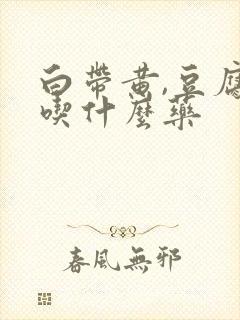 白帶黃,豆腐
喫什麼藥
春風無邪